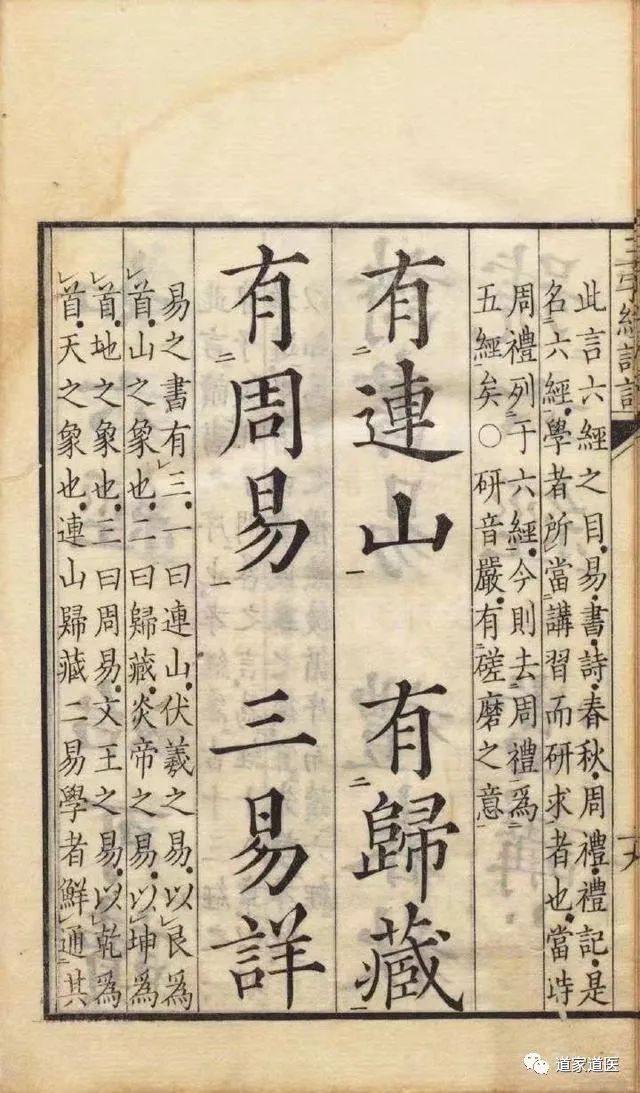 三字經註記
此言六經之目易書詩春秋周禮禮記是
名六經學者所當講習而研求者也當時
周禮列于六經今則去周禮爲
五經矣○研音嚴有磋磨之意
有連山 有歸藏
有周易 三易詳
易之書有三一曰連山伏羲之易以艮爲
首山之象也二曰歸藏炎帝之易以坤爲
首地之象也三曰周易文王之易以乾爲
首天之象也連山歸藏二易學者鮮通其
道家道医